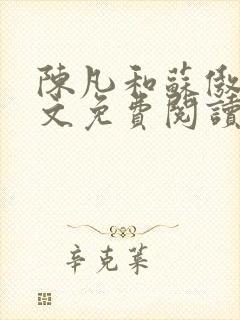 陳凡和蘇傲
文免費閱讀
辛克萊